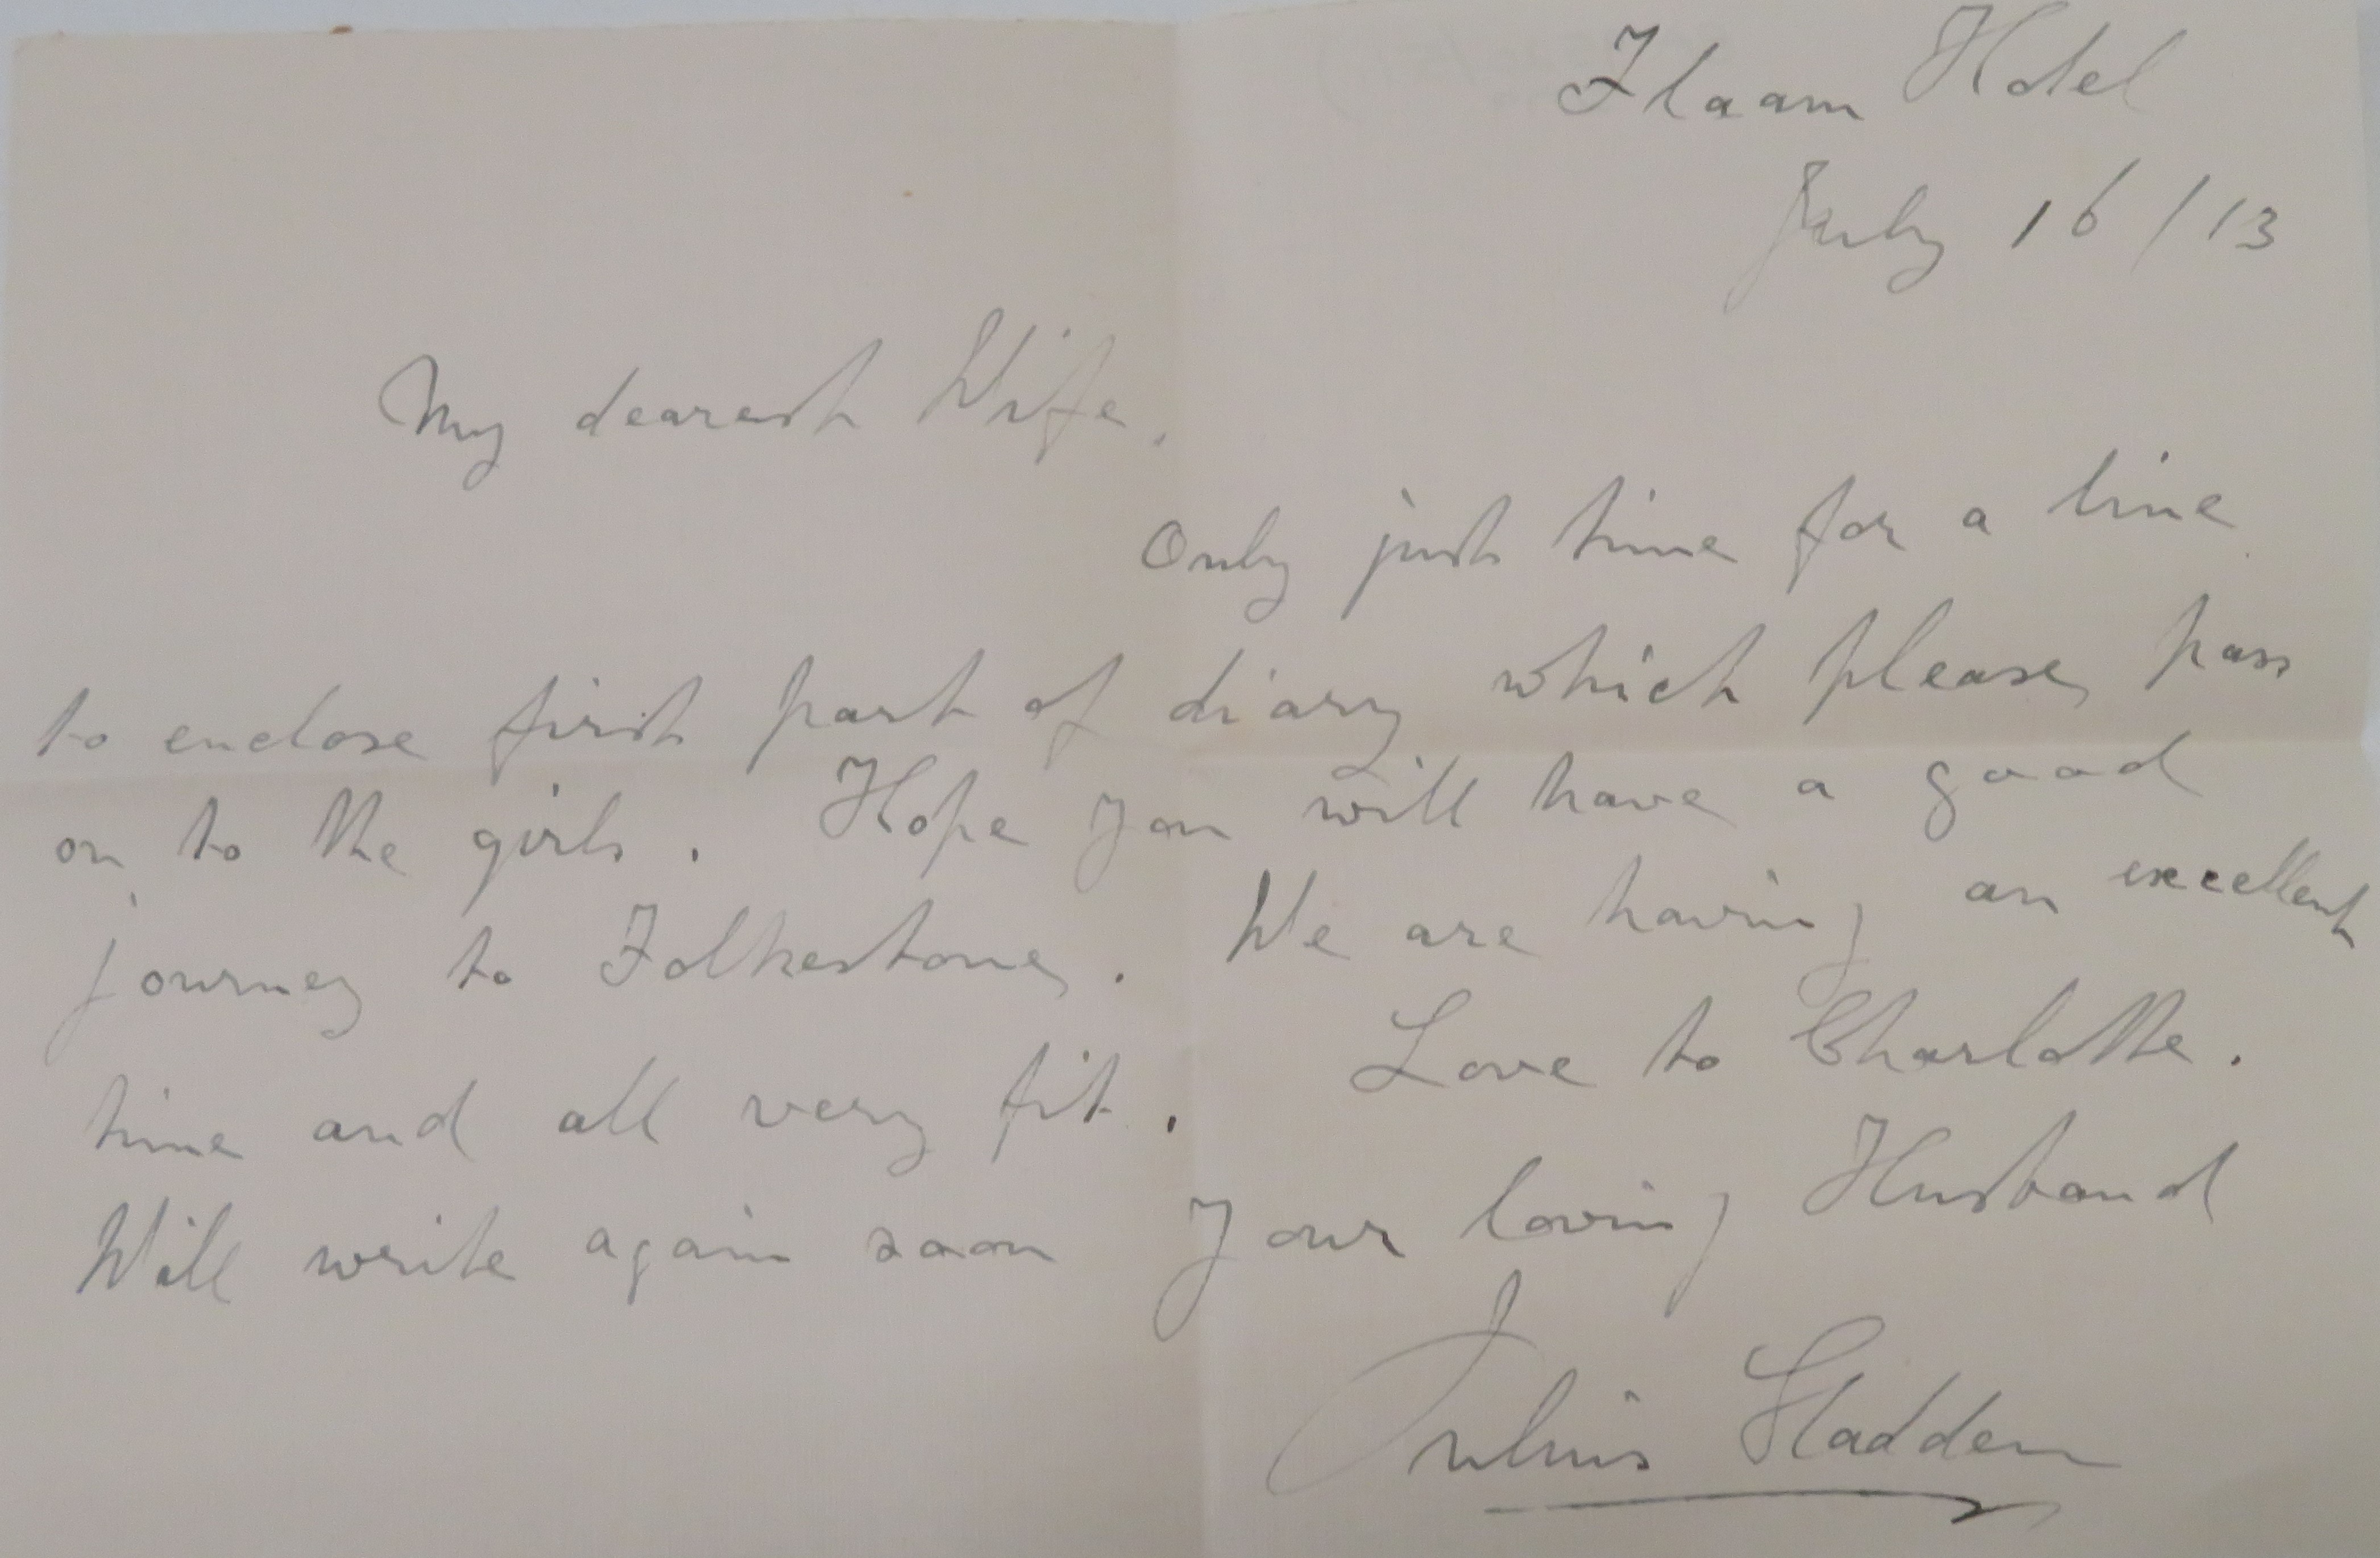 Flaam Hotel
July 16/13
My dearest Wife,
Only just time for a line
to enclose first part of diary which please pass
on to the girls. Hope you will have a good
journey to Folkestone. We are having an excellent
time and all very fit. Love to Charlotte.
Will write again soon Your loving Husband
Julius Sladden